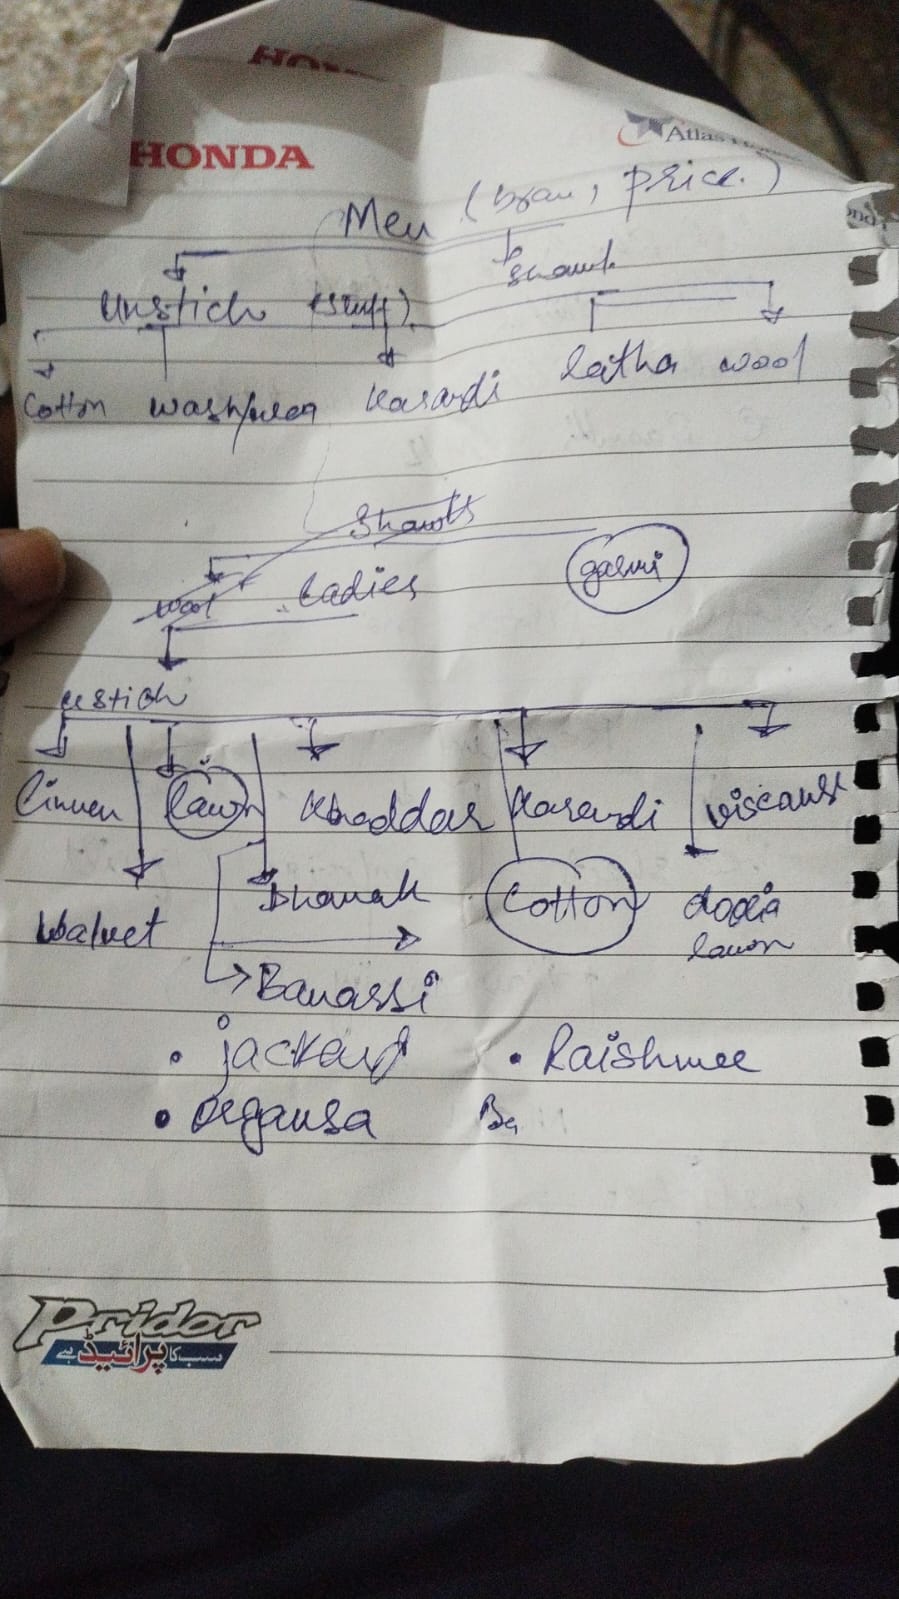 HONDA
HONDA
Atlas
Men (bran, price.)
Unstich (stuff) Shawl
Cotton wash/wear Karandi latha wool
Shawls
wool Ladies garmi
ustich
Linnen lawn Khaddar Karandi viscause
Walvet Dhanak Cotton dooria
lawn
Banarsi
• jackard • Raishmee
• Organsa Ba
Pridor
سب کا پرائیڈ ہے